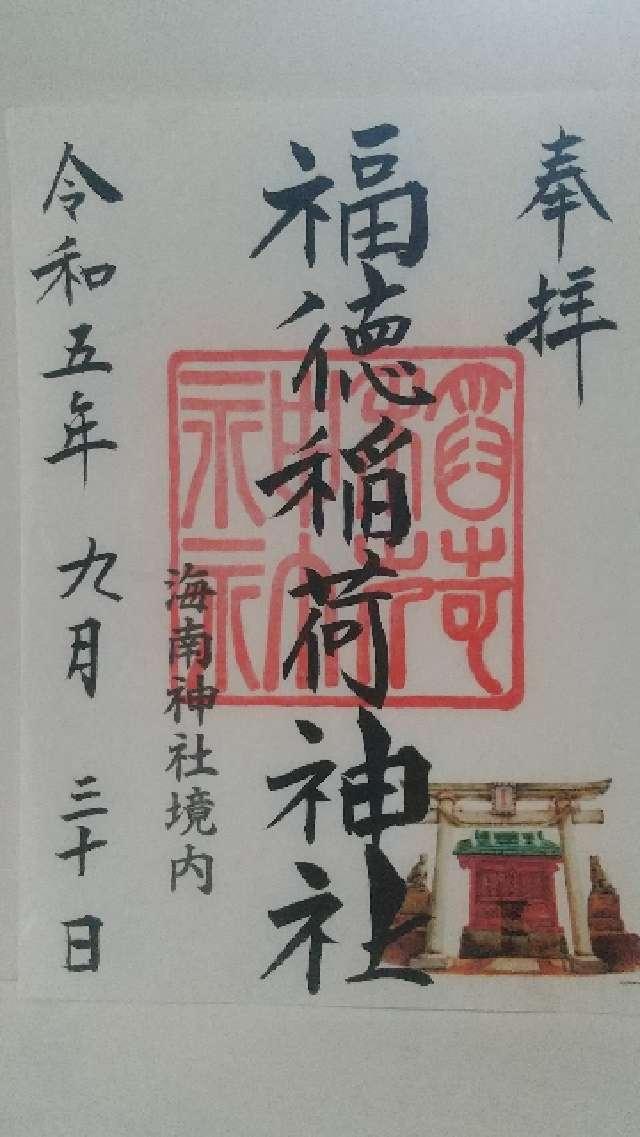 奉拝
福徳稲荷神社
海南神社境内
令和五年九月三十日